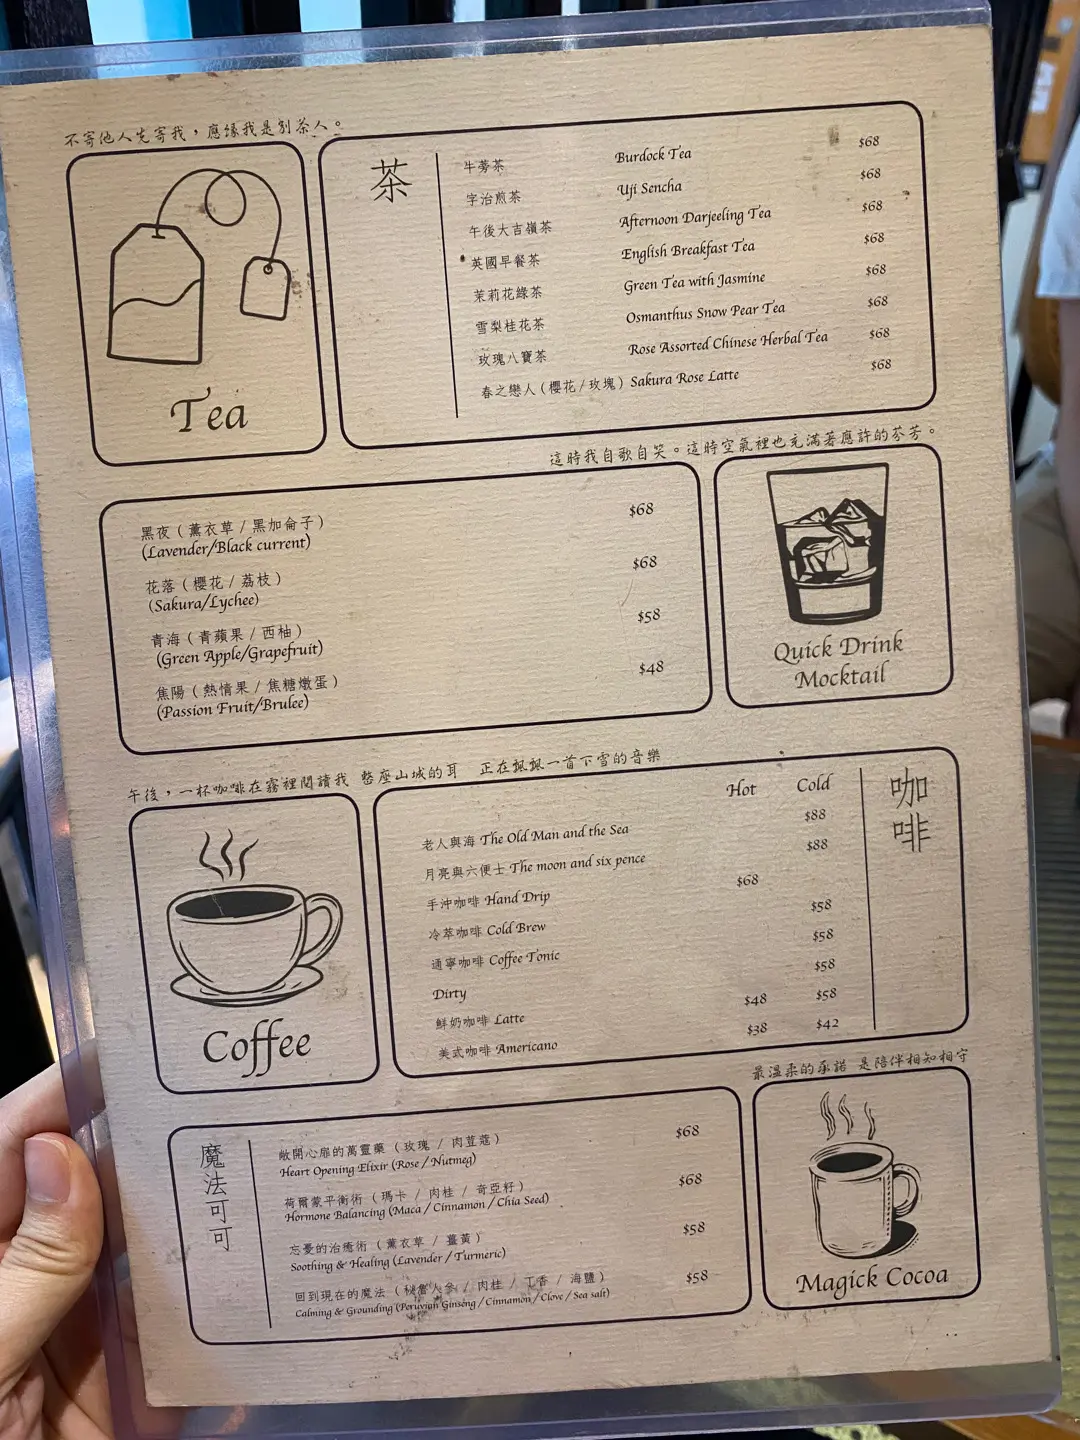 不寄他人先寄我，應緣我是別茶人。
Tea
茶
牛蒡茶 Burdock Tea $68
宇治煎茶 Uji Sencha $68
午後大吉嶺茶 Afternoon Darjeeling Tea $68
英國早餐茶 English Breakfast Tea $68
茉莉花綠茶 Green Tea with Jasmine $68
雪梨桂花茶 Osmanthus Snow Pear Tea $68
玫瑰八寶茶 Rose Assorted Chinese Herbal Tea $68
春之戀人（櫻花/玫瑰）Sakura Rose Latte $68
這時我自歌自笑。這時空氣裡也充滿著應許的芬芳。
黑夜（薰衣草 / 黑加侖子） $68
(Lavender/Black current)
花落（櫻花 / 荔枝） $68
(Sakura/Lychee)
青海（青蘋果 / 西柚） $58
(Green Apple/Grapefruit)
焦陽（熱情果 / 焦糖燉蛋） $48
(Passion Fruit/Brulee)
Quick Drink
Mocktail
午後，一杯咖啡在霧裡閱讀我 整座山城的耳 正在飄飄一首下雪的音樂
Coffee
Hot Cold
咖啡
老人與海 The Old Man and the Sea $88
月亮與六便士 The moon and six pence $88
手沖咖啡 Hand Drip $68
冷萃咖啡 Cold Brew $58
通寧咖啡 Coffee Tonic $58
Dirty $58
鮮奶咖啡 Latte $48 $58
美式咖啡 Americano $38 $42
最溫柔的承諾 是陪伴相知相守
魔法可可
敞開心扉的萬靈藥（玫瑰 / 肉荳蔻） $68
Heart Opening Elixir (Rose / Nutmeg)
荷爾蒙平衡術（瑪卡 / 肉桂 / 奇亞籽） $68
Hormone Balancing (Maca / Cinnamon / Chia Seed)
忘憂的治癒術（薰衣草 / 薑黃） $58
Soothing & Healing (Lavender / Turmeric)
回到現在的魔法（秘魯人參 / 肉桂 / 丁香 / 海鹽） $58
Calming & Grounding (Peruvian Ginseng / Cinnamon / Clove / Sea salt)
Magick Cocoa